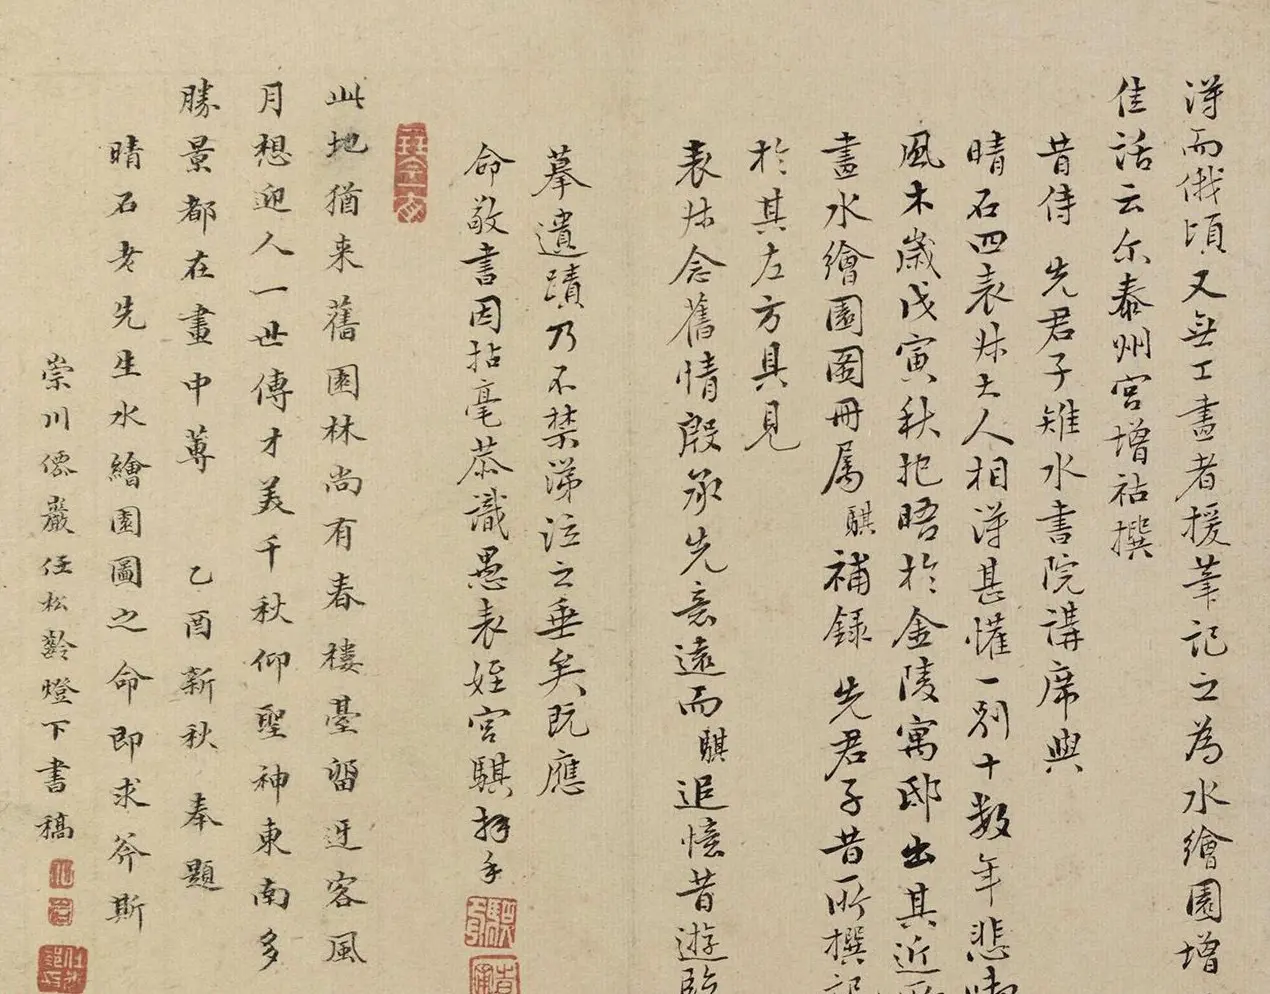 淂而俄頃又無工畫者援筆記之為水繪園增
佳話云尔泰州宮增祜撰
昔侍 先君子雉水書院講席與
晴石四表叔大人相淂甚懽一別十數年悲
風木歲戊寅秋把晤於金陵寓邸出其近
畫水繪園圖冊属騏補錄 先君子昔所撰記
於其左方具見
表叔念舊情殷承先意遠而騏追憶昔遊臨
摹遺蹟乃不禁涕泣之垂矣既應
命敬書因拈毫恭識愚表姪宮騏拜手
此地猶来舊園林尚有春樓臺畱迓客風
月想迎人一世傳才美千秋仰聖神東南多
勝景都在畫中蓴 乙酉新秋 奉題
晴石老先生水繪園圖之命即求斧斯
崇川儒巖任松齡燈下書稿